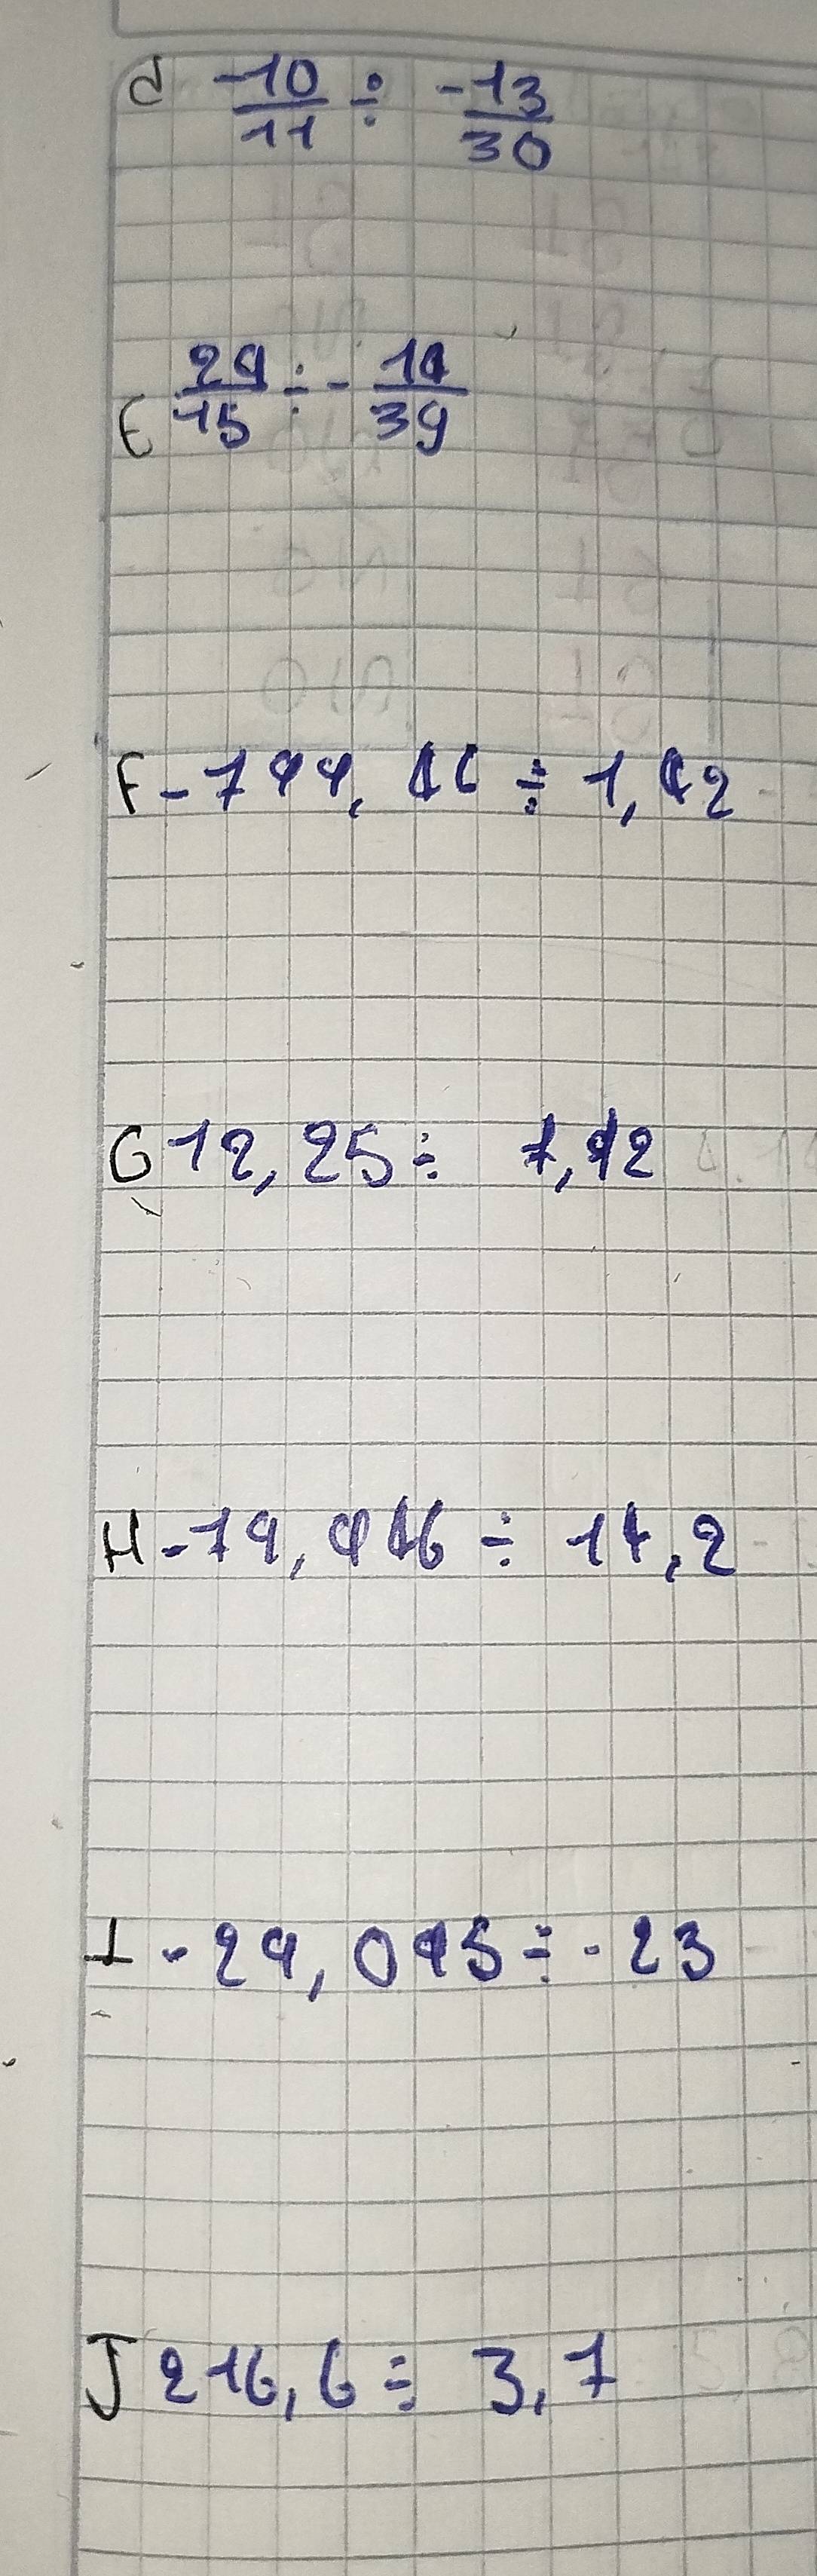 d -10/11 ÷ -13/30
E 24/15 ÷ - 14/39
F -744, ÷ 1,42
G 12,25 ÷
H -74, ÷ 14,2
I -24,045 ÷ -23
J 216,6 ÷ 3,7